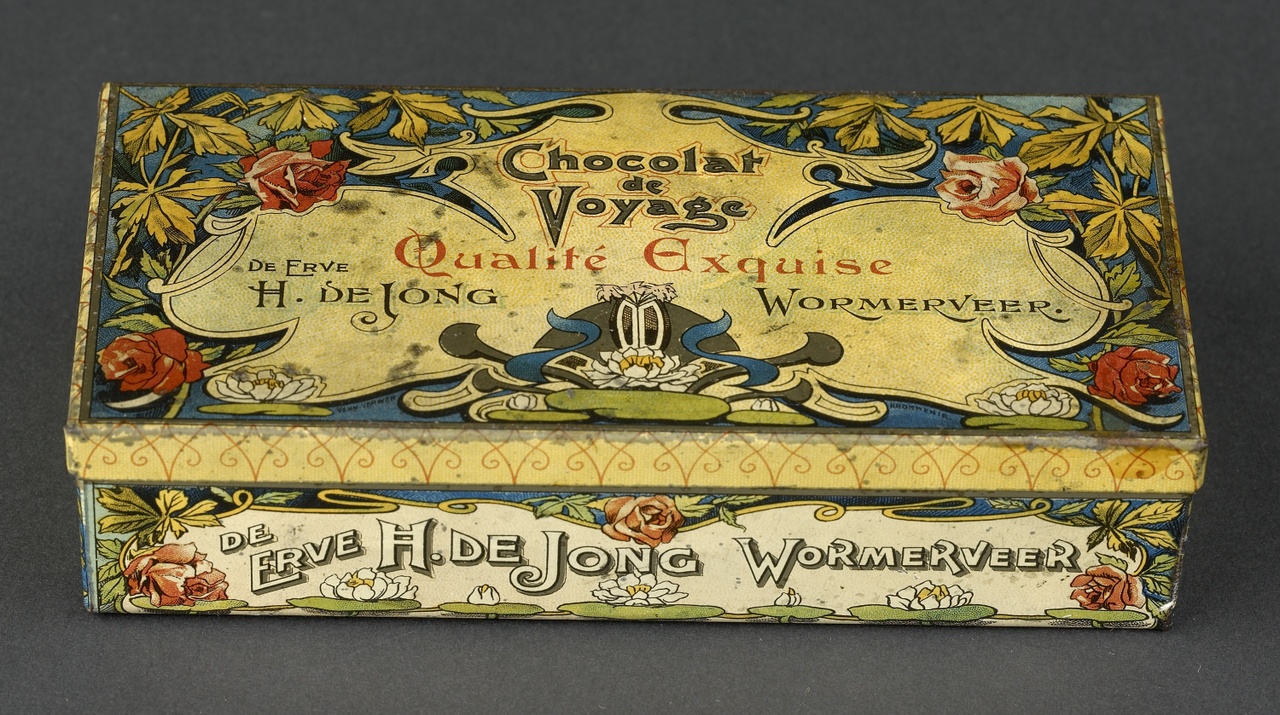 Chocolat
de
Voyage
Qualité Exquise
DE ERVE
H. DE JONG WORMERVEER.
KROMMENIE
DE ERVE H. DE JONG WORMERVEER